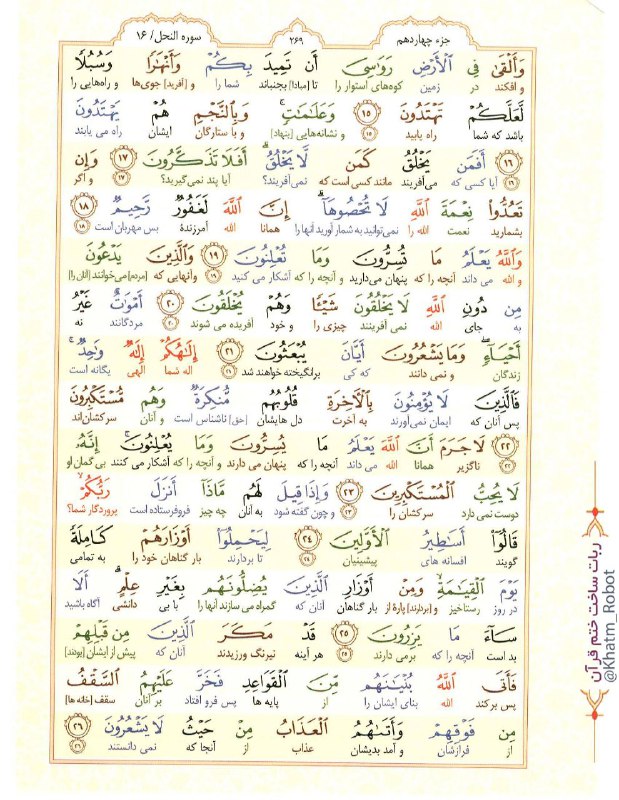 سوره النحل/ ۱۶
۲۶۹
جزء چهاردهم
وَأَلْقَىٰ فِي ٱلْأَرْضِ رَوَٰسِيَ أَن تَمِيدَ بِكُمْ وَأَنْهَٰرًا وَسُبُلًا
و افکند در زمین کوه‌های استوار را تا [مبادا] بجنباند شما را و [آفرید] جوی‌ها و راه‌هایی را
لَّعَلَّكُمْ تَهْتَدُونَ ۱۵ وَعَلَٰمَٰتٍ ۚ وَبِٱلنَّجْمِ هُمْ يَهْتَدُونَ
باشد که شما راه یابید ۱۵ و نشانه‌هایی [بنهاد] و با ستارگان ایشان راه می یابند
۱۶ أَفَمَن يَخْلُقُ كَمَن لَّا يَخْلُقُ ۗ أَفَلَا تَذَكَّرُونَ ۱۷ وَإِن
۱۶ آیا کسی که می‌آفریند مانند کسی است که نمی‌آفریند؟ آیا پند نمی‌گیرید؟ ۱۷ و اگر
تَعُدُّوا۟ نِعْمَةَ ٱللَّهِ لَا تُحْصُوهَآ ۗ إِنَّ ٱللَّهَ لَغَفُورٌ رَّحِيمٌ ۱۸
بشمارید نعمت الله را نمی‌توانید به شمار آورید آنها را همانا الله آمرزندهٔ بس مهربان است ۱۸
وَٱللَّهُ يَعْلَمُ مَا تُسِرُّونَ وَمَا تُعْلِنُونَ ۱۹ وَٱلَّذِينَ يَدْعُونَ
و الله می داند آنچه را که پنهان می‌دارید و آنچه را که آشکار می کنید ۱۹ و آنهایی که [مردم] می‌خوانند [آنان را]
مِن دُونِ ٱللَّهِ لَا يَخْلُقُونَ شَيْـًٔا وَهُمْ يُخْلَقُونَ ۲۰ أَمْوَٰتٌ غَيْرُ
به جای الله نمی آفرینند چیزی را و خود آفریده می شوند ۲۰ مردگانند نه
أَحْيَآءٍ ۖ وَمَا يَشْعُرُونَ أَيَّانَ يُبْعَثُونَ ۲۱ إِلَٰهُكُمْ إِلَٰهٌ وَٰحِدٌ ۚ
زندگان و نمی دانند که کی برانگیخته خواهند شد ۲۱ اله شما الهی یگانه است
فَٱلَّذِينَ لَا يُؤْمِنُونَ بِٱلْـَٔاخِرَةِ قُلُوبُهُم مُّنكِرَةٌ وَهُم مُّسْتَكْبِرُونَ
پس آنان که ایمان نمی‌آورند به آخرت دل هایشان [حق] ناشناس است و آنان سرکشان‌اند
۲۲ لَا جَرَمَ أَنَّ ٱللَّهَ يَعْلَمُ مَا يُسِرُّونَ وَمَا يُعْلِنُونَ ۚ إِنَّهُۥ
۲۲ ناگزیر همانا الله می داند آنچه را که پنهان می دارند و آنچه را که آشکار می کنند بی گمان او
لَا يُحِبُّ ٱلْمُسْتَكْبِرِينَ ۲۳ وَإِذَا قِيلَ لَهُم مَّاذَآ أَنزَلَ رَبُّكُمْ ۙ
دوست نمی دارد سرکشان را ۲۳ و چون گفته شود به آنان چه چیز فروفرستاده است پروردگار شما؟
قَالُوٓا۟ أَسَٰطِيرُ ٱلْأَوَّلِينَ ۲۴ لِيَحْمِلُوٓا۟ أَوْزَارَهُمْ كَامِلَةً
گویند افسانه های پیشینیان ۲۴ تا بردارند بار گناهان خود را به تمامی
يَوْمَ ٱلْقِيَٰمَةِ ۙ وَمِنْ أَوْزَارِ ٱلَّذِينَ يُضِلُّونَهُم بِغَيْرِ عِلْمٍ ۗ أَلَا
در روز رستاخیز و [بردارند] پارهٔ از بار گناهان آنان که گمراه می سازند آنها را با بی دانشی آگاه باشید
سَآءَ مَا يَزِرُونَ ۲۵ قَدْ مَكَرَ ٱلَّذِينَ مِن قَبْلِهِمْ
بد است آنچه را که برمی دارند ۲۵ هر آینه نیرنگ ورزیدند آنان که پیش از ایشان [بودند]
فَأَتَى ٱللَّهُ بُنْيَٰنَهُم مِّنَ ٱلْقَوَاعِدِ فَخَرَّ عَلَيْهِمُ ٱلسَّقْفُ
پس برکند الله بنای ایشان را از پایه ها پس فرو افتاد بر آنان سقف [خانه ها]
مِن فَوْقِهِمْ وَأَتَىٰهُمُ ٱلْعَذَابُ مِنْ حَيْثُ لَا يَشْعُرُونَ ۲۶
از فرازشان و آمد بدیشان عذاب از آنجا که نمی دانستند ۲۶
ربات ساخت ختم قرآن
@Khatm_Robot